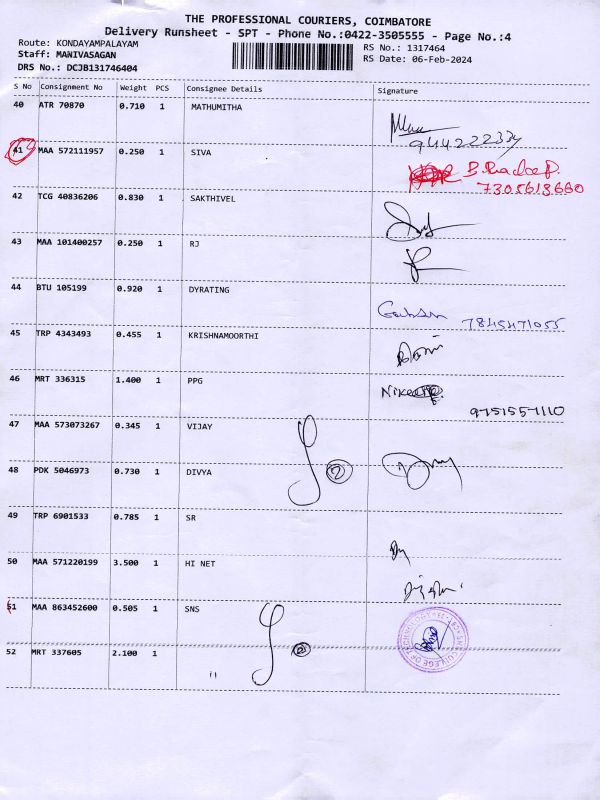 THE PROFESSIONAL COURIERS, COIMBATORE
Delivery Runsheet - SPT - Phone No.:0422-3505555 - Page No.:4
Route: KONDAYAMPALAYAM
RS No.: 1317464
Staff: MANIVASAGAN
RS Date: 06-Feb-2024
DRS No.: DCJB131746404
S No Consignment No Weight PCS Consignee Details Signature
40 ATR 70870 0.710 1 MATHUMITHA
9442222334
41 MAA 572111957 0.250 1 SIVA
7305613660
42 TCG 40836206 0.830 1 SAKTHIVEL
43 MAA 101400257 0.250 1 RJ
44 BTU 105199 0.920 1 DYRATING
7845471055
45 TRP 4343493 0.455 1 KRISHNAMOORTHI
46 MRT 336315 1.400 1 PPG
9751557110
47 MAA 573073267 0.345 1 VIJAY
48 PDK 5046973 0.730 1 DIVYA
2
49 TRP 6901533 0.785 1 SR
50 MAA 571220199 3.500 1 HI NET
51 MAA 863452600 0.505 1 SNS
COLLEGE OF TECHNOLOGY
52 MRT 337605 2.100 1